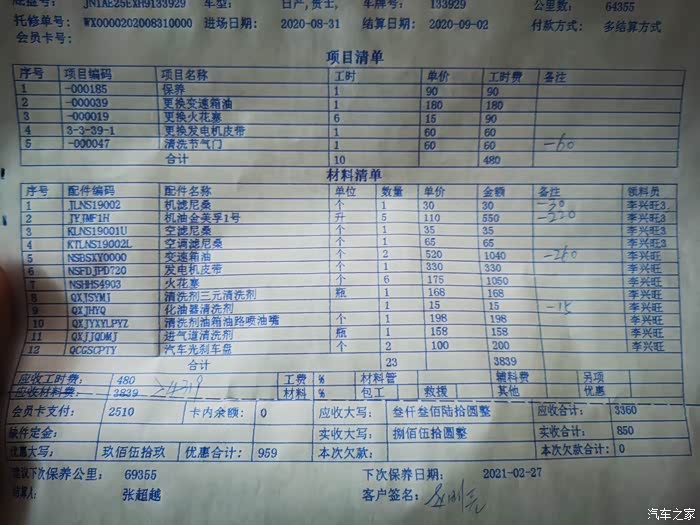 底盘号: JN1AE25EXH9133929 车型: 日产,贵士, 车牌号: 133929 公里数: 64355
托修单号: WX0000202008310000 进场日期: 2020-08-31 结算日期: 2020-09-02 付款方式: 多结算方式
会员卡号:
项目清单
序号 项目编码 项目名称 工时 单价 工时费 备注
1 -000185 保养 1 90 90
2 -000039 更换变速箱油 1 180 180
3 -000019 更换火花塞 6 15 90
4 3-3-39-1 更换发电机皮带 1 60 60
5 -000047 清洗节气门 1 60 60 -60
合计 10 480
材料清单
序号 配件编码 配件名称 单位 数量 单价 金额 备注 领料员
1 JLNS19002 机滤尼桑 个 1 30 30 -30 李兴旺3,
2 JYJMF1H 机油金美孚1号 升 5 110 550 -220 李兴旺3,
3 KLNS19001U 空滤尼桑 个 1 35 35 李兴旺3
4 KTLNS19002L 空调滤尼桑 个 1 65 65 李兴旺3
5 NSBSXY0000 变速箱油 个 2 520 1040 李兴旺
6 NSFDJPD720 发电机皮带 个 1 330 330 李兴旺
7 NSHHS4903 火花塞 个 6 175 1050 李兴旺
8 QXJSYMJ 清洗剂三元清洗剂 瓶 1 168 168 李兴旺
9 QXJHYQ 化油器清洗剂 1 15 15 -15 李兴旺
10 QXJYXYLPYZ 清洗剂油箱油路喷油嘴 个 1 198 198 李兴旺
11 QXJJQDMJ 进气道清洗剂 瓶 1 158 158 李兴旺
12 QCGSCPTY 汽车光刹车盘 个 2 100 200 李兴旺
合计 23 3839
应收工时费: 480 工费 % 材料管 辅料费 另项
应收材料费: 3839 材料 % 包工 救援 其他 优惠
会员卡支付: 2510 卡内余额: 0 应收大写: 叁仟叁佰陆拾圆整 应收合计: 3360
缺件定金: 实收大写: 捌佰伍拾圆整 实收合计: 850
优惠大写: 玖佰伍拾玖 优惠合计: 959 本次欠款: 本次欠款合计: 0
建议下次保养公里: 69355 下次保养日期: 2021-02-27
结算人: 张超越 客户签名:
汽车之家